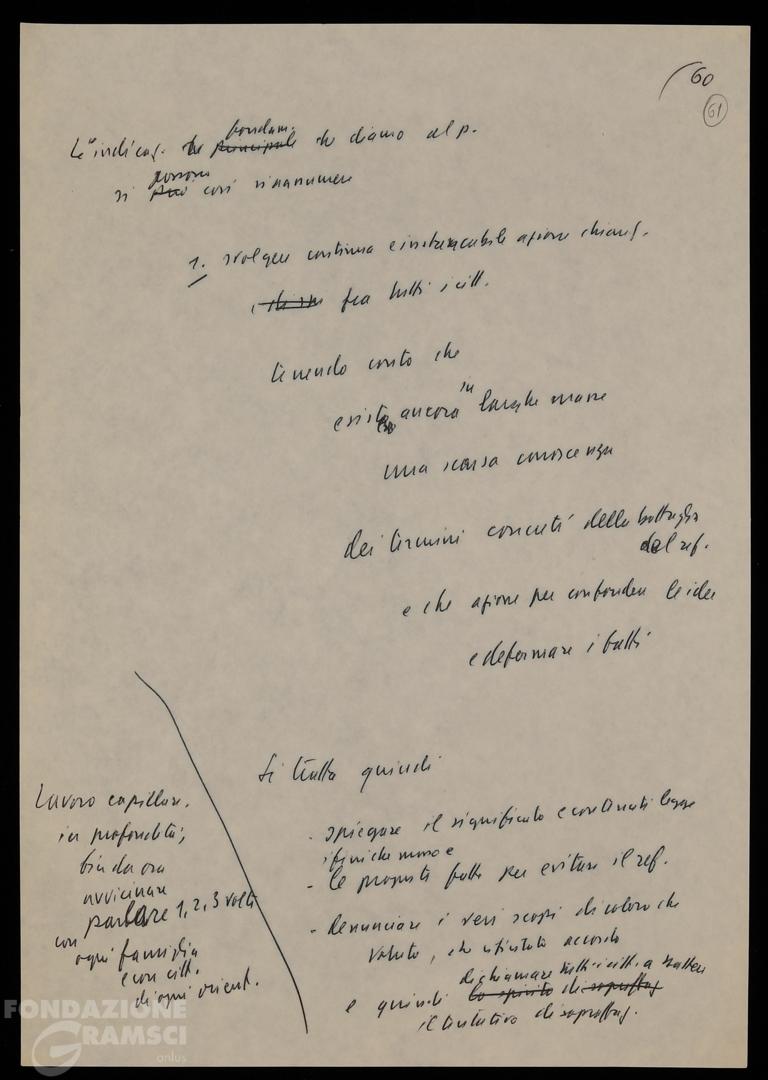 60
61
Le indicaz. fondam. che diamo al p.
si possono così riassumere
1. svolgere continua e instancabile azione chiarif.
fra tutti i citt.
tenendo conto che
esiste ancora in larghe masse
una scarsa conoscenza
dei termini concreti della battaglia
del ref.
e che azione per confondere le idee
e deformare i fatti
Si tratta quindi
- spiegare il significato e contenuti legge
i fini che muove
- le proposte fatte per evitare il ref.
- denunciare i veri scopi di coloro che
voluto, che rifiutato accordo
e quindi di chiamare tutti i citt. a battere
il tentativo di sopraffaz.
Lavoro capillare,
in profondità;
fin da ora
avvicinare
parlare 1, 2, 3 volte
con ogni famiglia
e con citt.
di ogni orient.
FONDAZIONE
GRAMSCI
onlus